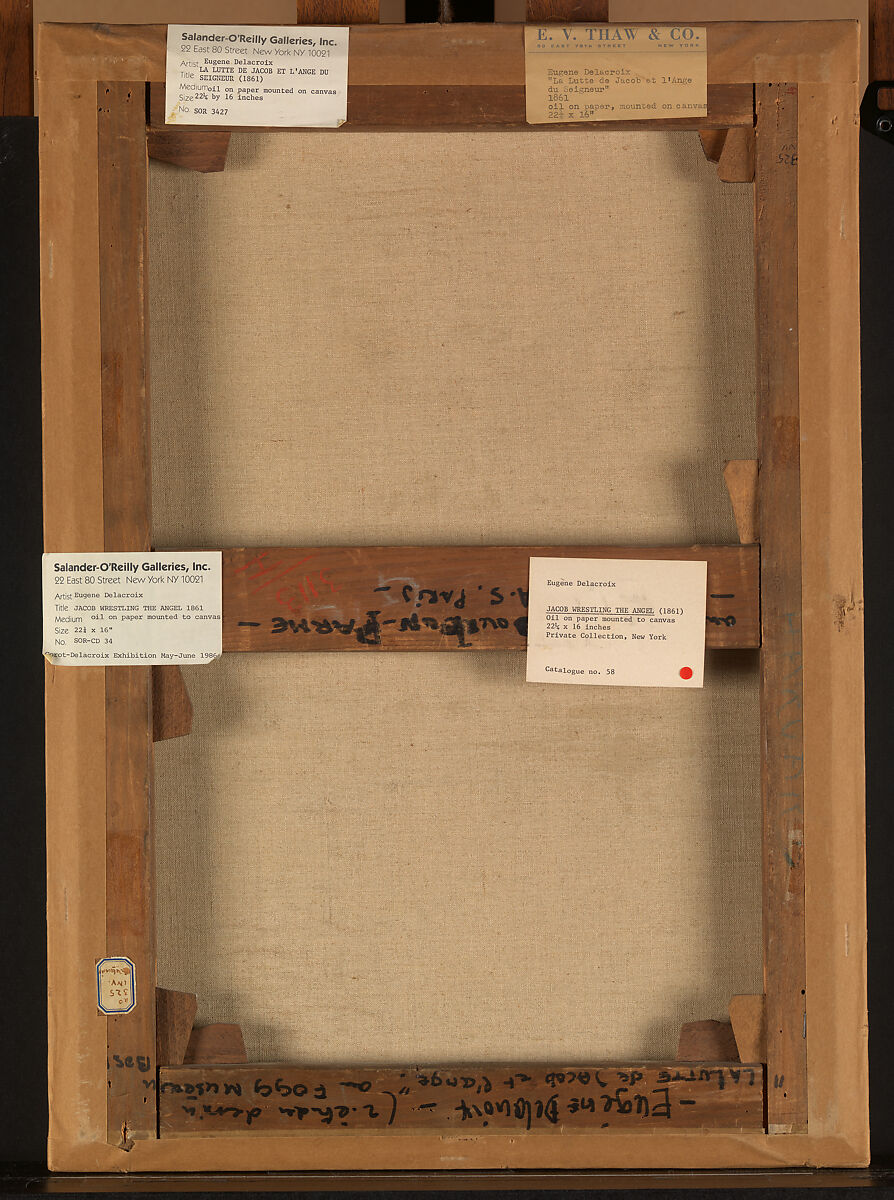 Salander-O'Reilly Galleries, Inc.
22 East 80 Street New York NY 10021
Artist Eugene Delacroix
Title LA LUTTE DE JACOB ET L'ANGE DU
SEIGNEUR (1861)
Medium oil on paper mounted on canvas
Size 22¼ by 16 inches
No. SOR 3427
E. V. THAW & CO.
50 EAST 78TH STREET NEW YORK
Eugene Delacroix
"La Lutte de Jacob et l'Ange
du Seigneur"
1861
oil on paper, mounted on canvas
22¼ x 16"
325
INV
Salander-O'Reilly Galleries, Inc.
22 East 80 Street New York NY 10021
Artist Eugene Delacroix
Title JACOB WRESTLING THE ANGEL 1861
Medium oil on paper mounted to canvas
Size 22¼ x 16"
No. SOR-CD 34
Corot-Delacroix Exhibition May-June 1986
Eugène Delacroix
JACOB WRESTLING THE ANGEL (1861)
Oil on paper mounted to canvas
22¼ x 16 inches
Private Collection, New York
Catalogue no. 58
BOURBON-PARME —
A.S. PARIS —
20
325
INV.
— Eugène Delacroix — (
"LA LUTTE de Jacob et l'ange". au FOGG Museum